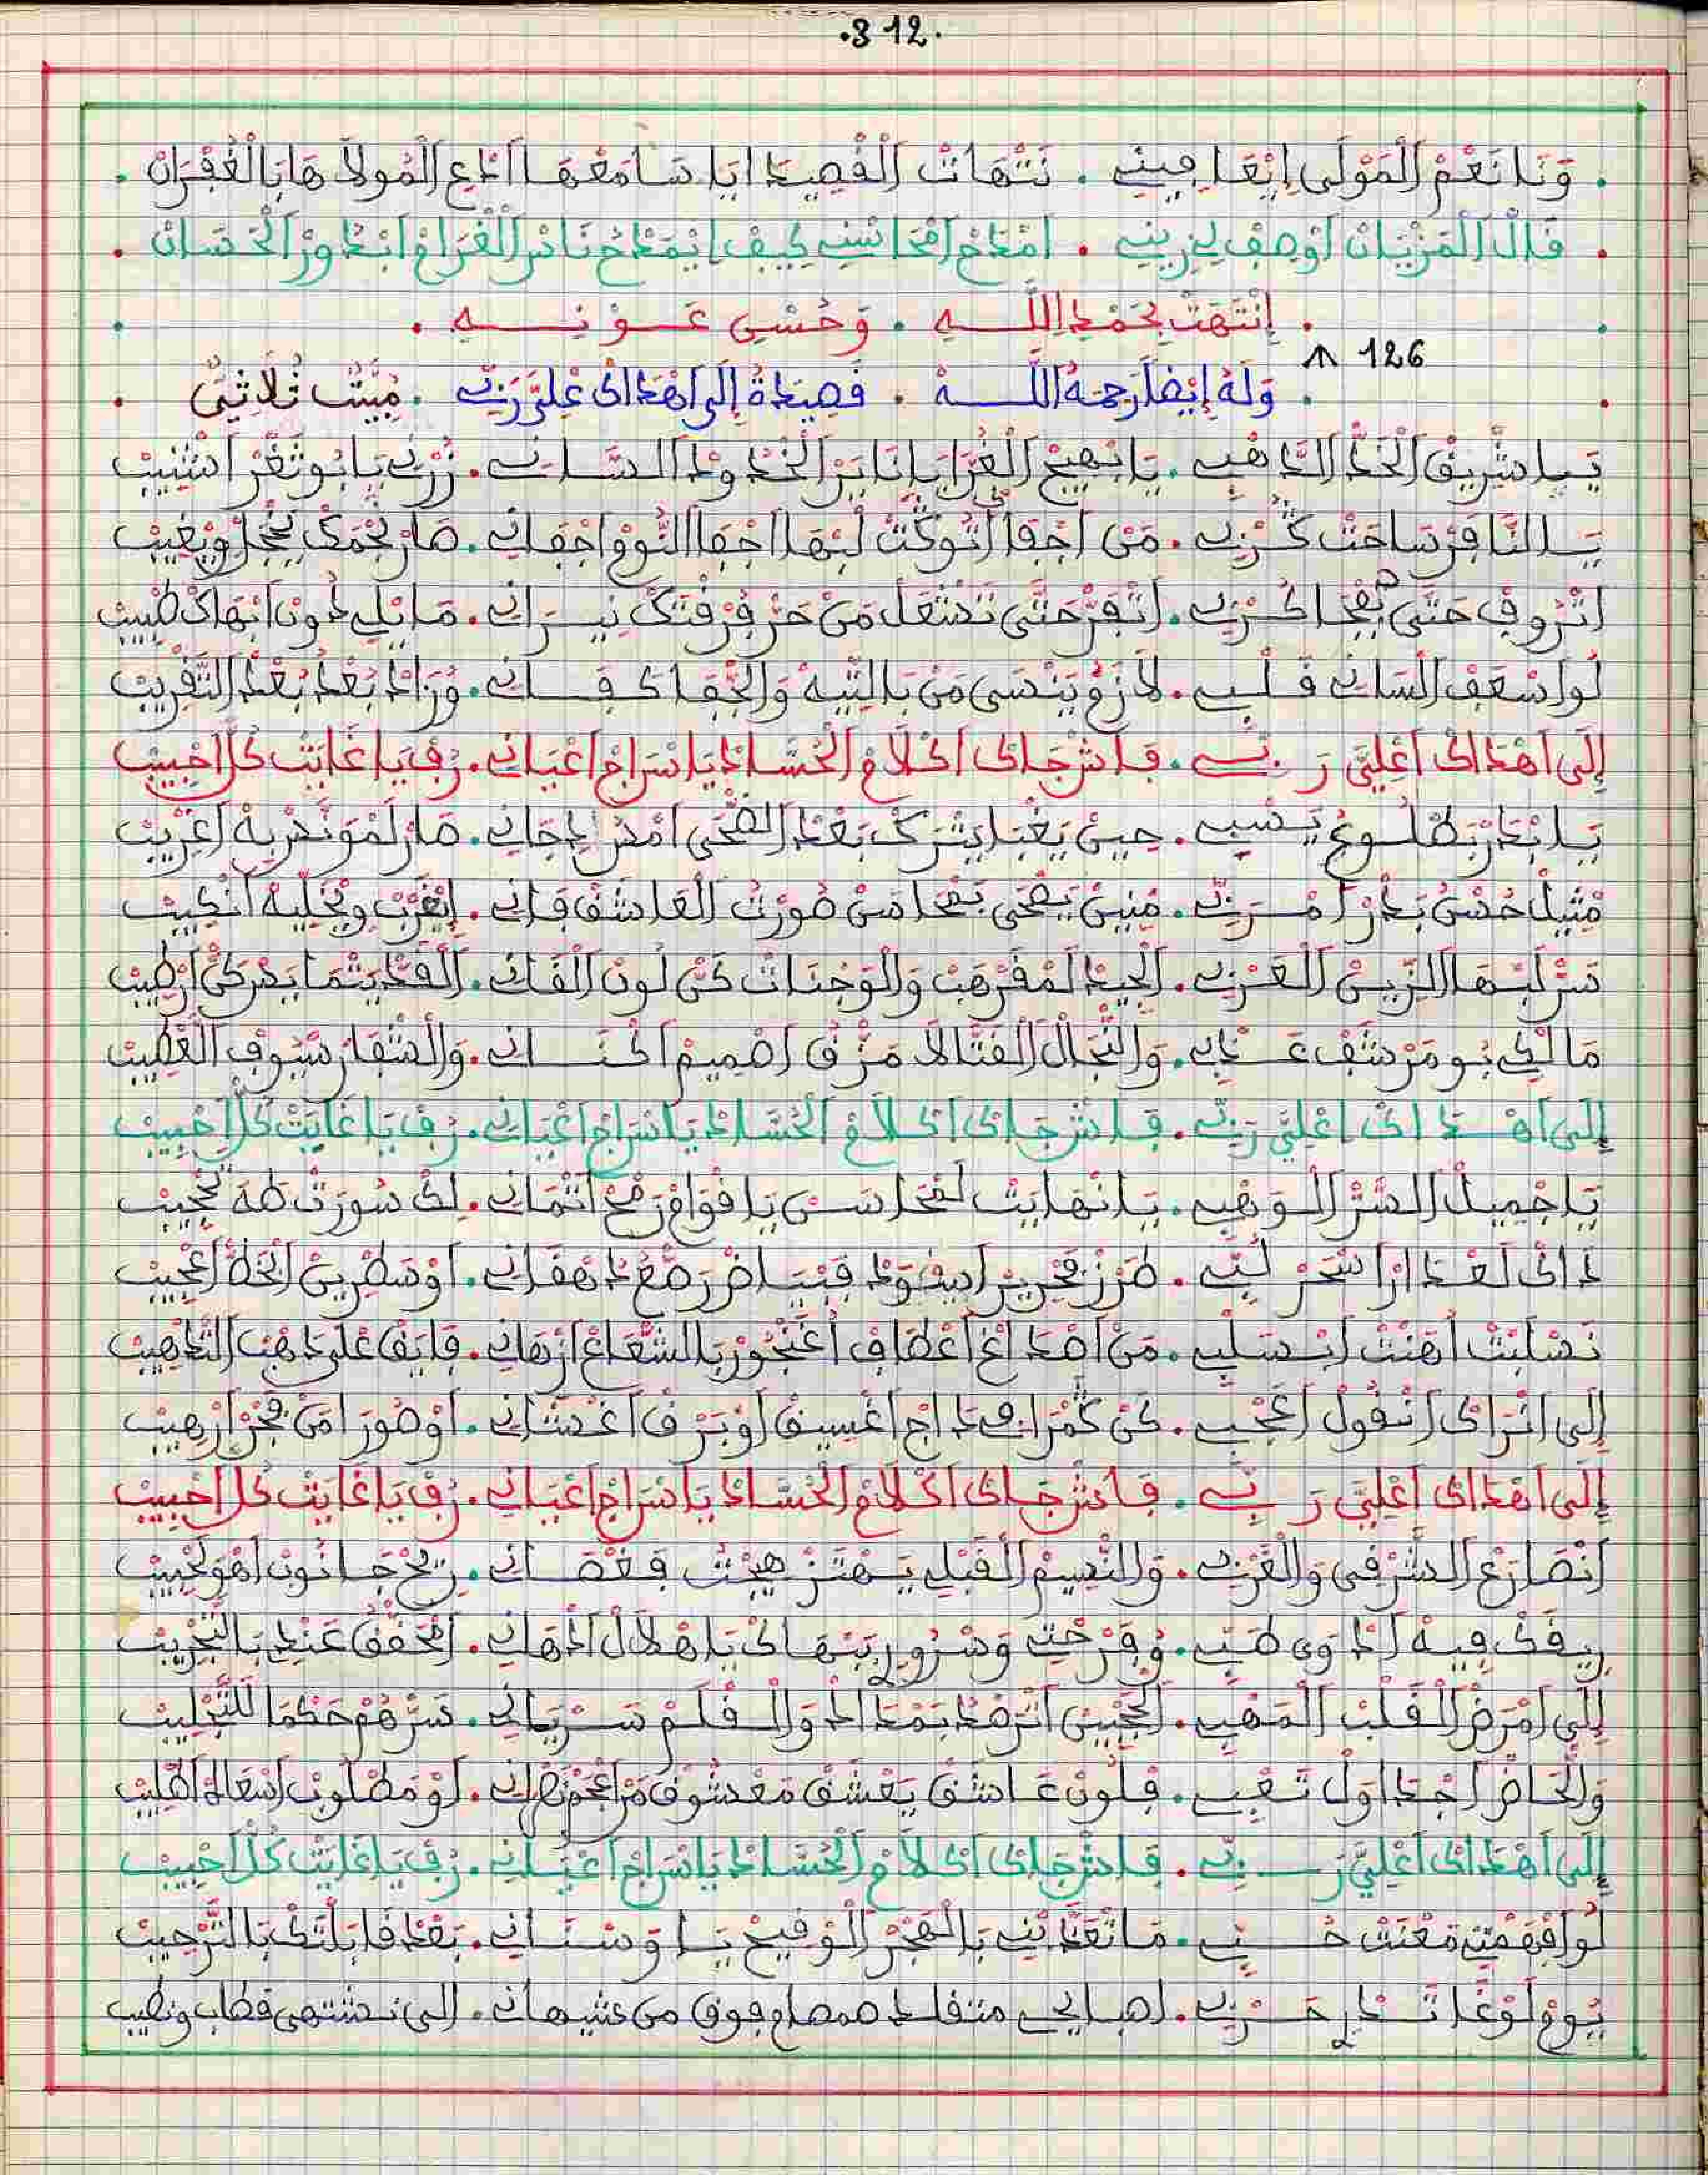 .312.
. وَنَا نَعْمْ الْمَوْلَى إِيْعَافِينِي . نَتْهَاتْ الْقْصِيدَا ايَا سَامَعْهَا ادْعِ الْمُولَا هَا بَالْغُفْرَانْ .
. قَالْ الْمَزْيَانْ اوْصِفْ لِي زِينِي . امْدَحْ امْحَاسْنِي كِيفْ ايْمَدْحُ نَاسْ الْغْرَامْ ابْدُورْ الْحَسَانْ .
. إِنْتَهَتْ بِحَمْدِ اللَّهِ . وَحُسْنِ عَوْنِهِ .
126
. وَلَهُ إِيْضاً رَحِمَهُ اللَّهْ . قَصِيدَةْ إِلَى اهْدَاكْ عْلِيَّ رَبِّي . مْبَيَّتْ ثُلَاثِي .
يَا شْرِيقْ الْخَدّْ الذَّاهْبِي . يَا بْهِيجْ الْغُرَّا يَا نَايَرْ الْخْدُودْ السَّانِي . زُرْنِي يَا بُو ثَغْرْ اشْنِيبْ
يَا النَّافَرْ سَاحَتْ كُرْبِي . مَنْ اجْفَاكْ التُّوكْتْ لَبْهَا اجْفَا النُّومْ اجْفَانِي . صَارْ نَجْمَكْ يَنْجَلْ ويْغِيبْ
اتْرُوفْ حَتَّى بَجْفَاكْ كْرْبِي . اتْفَرْ حَتَّى تَشْعَلْ مَنْ حَرّْ فُرْقْتَكْ نِيرَانِي . مَا نْلِي دُونْ ابْهَاكْ طْبِيبْ
لُو اسْعَفْ السَّانِي قَلْبِي . لَازَمْ يَنْسَى مَنْ بَالتِّيهْ وَالْجْفَا كَفَانِي . وُرَادْ بَعْدْ بُعْدْ التَّقْرِيبْ
إِلَى اهْدَاكْ اعْلِيَّ رَبِّي . فَاشْ جَاكْ اكْلَامْ الْحُسَّادْ يَا سْرَاجْ اعْيَانِي . رُفْ يَا غَايَتْ كُلّْ احْبِيبْ
يَا بْدَرْ بَطْلُوعُ يَسْبِي . حِينْ يَغْيَا يَتْرَكْ بَعْدْ الضّْحَى امْسْ ادْجَانِي . صَارْ لَمْوَنَّسْ بِهْ اغْرِيبْ
مْثِيلْ حُسْنُ بَدْرْ امْرَبِّي . مْنِينْ يَضْحَى بَضْحَا مَنْ صُورْتْ الْعَاشَقْ فَانِي . إِيْغَرَّبْ ويْخَلِّيهْ انْكِيبْ
سَرّْ لَبْهَا الزِّينْ الْعَرْبِي . الْجِيدْ لَمْفَرْهَبْ وَالْوَجْنَاتْ كَنْ لُونْ الْقَانِي . الْقَدّْ يَتْمَايَسْ كَنْ ارْطِيبْ
مَالْكِي بُو مَرْشَفْ عَذْبِي . وَالنّْجَالْ الْفَتَّالَا مَزَّقْ اصْمِيمْ الْكْنَانِي . وَالشّْفَارْ سْيُوفْ الْعْطِيبْ
إِلَى اهْدَاكْ اعْلِيَّ رَبِّي . فَاشْ جَاكْ اكْلَامْ الْحُسَّادْ يَا سْرَاجْ اعْيَانِي . رُفْ يَا غَايَتْ كُلّْ احْبِيبْ
يَا جْمِيلْ السَّرّْ الْوَهْبِي . يَا نْهَايَتْ لَمْحَاسَنْ يَا قْوَامْ رَمْحْ اتْمَانِي . لَكْ سُورَتْ طَهَ تَحْجِيبْ
دَاكْ لَعْدَارْ اسْحَرْ لُبِّي . طَرْزْ تَحْرِيرْ ادِيفْ وَدْ فَبْيَاضْ رَصْعُ دَهْقَانِي . اوْسَطْرِينْ الْخَطّْ اعْجِيبْ
نَسْلَبْتْ اهَنْتْ ابْسَلْبِي . مَنْ اصْدَاغْ اعْطَافْ اغَنْجُورْ بَالشّْعَاعْ ازْهَانِي . فَايَقْ عْلَى دْهَبْ التَّدْهِيبْ
إِلَى انْرَاكْ انْقُولْ اعْجْبِي . كَنْ كَمْرَا فِي دَاجْ اغْسِيقْ اوْ بَرْقْ اغْشَانِي . اوْ صُورَا مَنْ فَجْرْ ارْهِيبْ
إِلَى اهْدَاكْ اعْلِيَّ رَبِّي . فَاشْ جَاكْ اكْلَامْ الْحُسَّادْ يَا سْرَاجْ اعْيَانِي . رُفْ يَا غَايَتْ كُلّْ احْبِيبْ
انْصَارَعْ الشَّرْقِي وَالْغَرْبِي . وَالنّْسِيمْ الْقَبْلِي يَهْتَزّْ هِيجْتُ فَغْصَانِي . رِيحْ جَا نُونْ اهْوَ نْحِيبْ
رِيقَكْ فِيهْ ادْوَى طَبِّي . وُفَرْحْتِي وَسْرُورِي بَبْهَاكْ يَا هْلَالْ ادْهَانِي . اتْحَقَّقْ عَنْدِي بَالتَّجْرِيبْ
إِلَى امْرَضْ الْقَلْبْ الْمَصْبِي . الْجْبِينْ اتْرَصَّدْ بَمْدَادْ وَالْقْلَمْ سَرْيَانِي . سَرّْهُمْ حَكْمَا لَلتَّجْلِيبْ
وَلْحَاضْ اجْدَاوَلْ تَعْبِي . فْلُونْ عَاشَقْ يَعْشَقْ مَعْشُوقْ مَنْ اعْجَمْ نَصْرَانِي . لُو مَطْلُوبُ اسْعَادُ اصْلِيبْ
إِلَى اهْدَاكْ اعْلِيَّ رَبِّي . فَاشْ جَاكْ اكْلَامْ الْحُسَّادْ يَا سْرَاجْ اعْيَانِي . رُفْ يَا غَايَتْ كُلّْ احْبِيبْ
لُو افْهَمْتِي مَعْنَتْ حُبِّي . مَا تْعَدَّبْنِي بَالْهْجَرْ الْوْقِيحْ يَا وَسْنَانِي . بَعْدْ قَابَلْتَكْ بَالتَّرْحِيبْ
يُومْ لَوْغَا تَدْرِي حَرْبِي . اصبايحي متقلد صمصام فوق من عشيهاني . الى نشتهى قطاب ونطيب